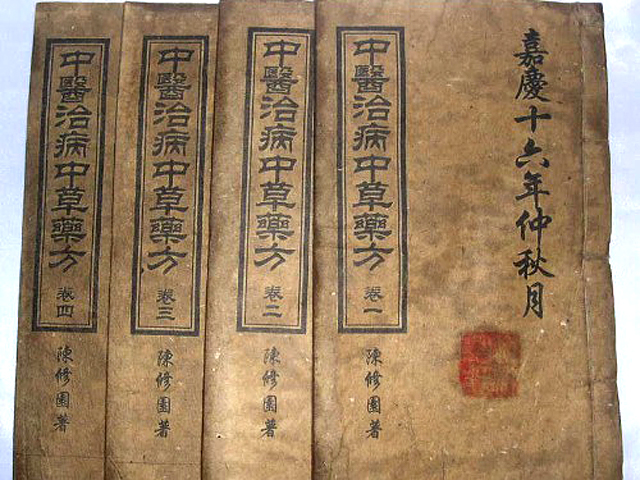 嘉慶十六年仲秋月
中醫治病中草藥方 卷一
陳修園著
中醫治病中草藥方 卷二
陳修園著
中醫治病中草藥方 卷三
陳修園著
中醫治病中草藥方 卷四
陳修園著